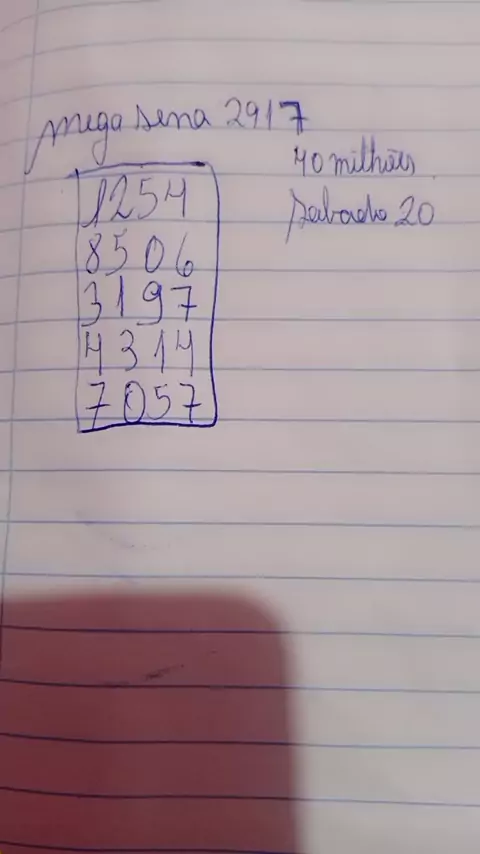 mega sena 2917
40 milhões
sabado 20
1254
8506
3197
4314
7057